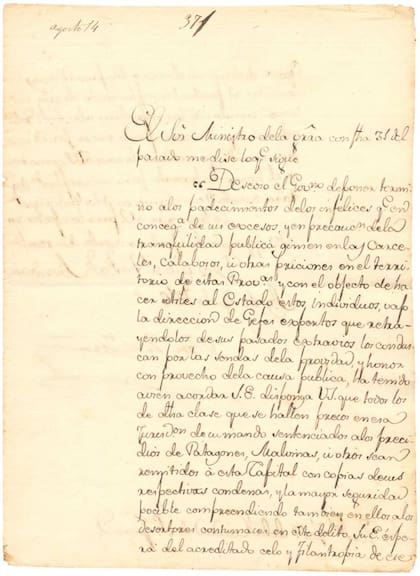 agosto 14
371
El Sōr Ministro dela grra con fha 31 del
pasado me dise loq.e sigue
"Deseoso el Gov.no de poner termi
no alos padecimientos delos infelices q.e en
conceq.a de sus excesos, y en precauc.n dela
tranquilidad publica gimen en las Carce
les, calabosos, ú otras priciones en el terri
torio de estas Prov.as y con el objeto de ha
cer utiles al Estado estos individuos, vajo
la direccion de Gefes expertos que retra
yendolos de sus pasados extravios los condus
can por las sendas dela providad, y honor
con provecho dela causa publica, ha tenido
avien acordar S.E. disponga VS. que todos los
de dha clase que se hallen precos en esa
Jurisd.on de su mando sentenciados alos precí
dios de Patagones, Malvinas, ú otros sean
remitidos á esta Capital con copias desus
respectivas condenas, y la mayor seguridad
pocible comprendiendo tambien en ellos alos
desertores contumaces en este delito. Su E. éspe
ra del acreditado celo y filantropia de ese